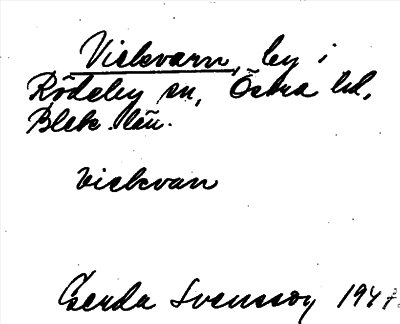 Viekvarn, by i
Rödeby sn, Östra hd,
Blek. län.
Viekvan
Gerda Svensson 1947.